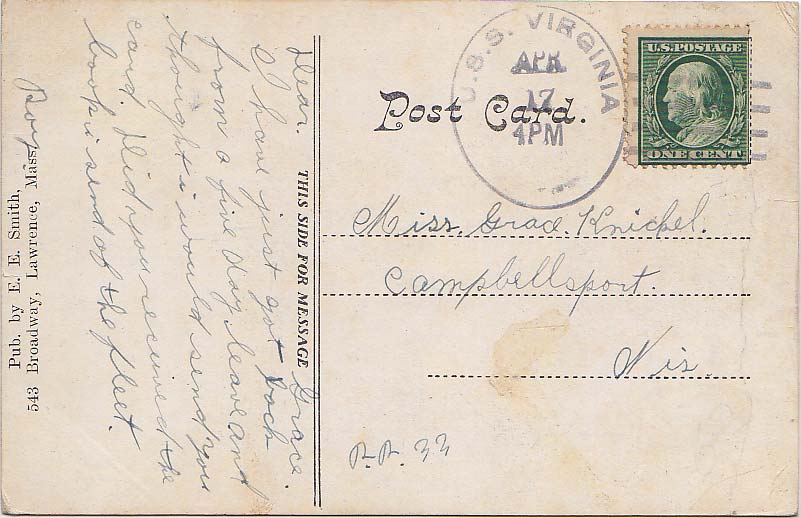 U.S.S. VIRGINIA
APR
17
4PM
U.S. POSTAGE
ONE CENT
Post Card.
THIS SIDE FOR MESSAGE
Miss. Grace. Knickel.
Campbellsport.
Wis.
R.R. 33
Dear. Grace.
I have just got back
from a five day leave and
thought i would send you
card. Did you received the
book i send of the fleet.
Roy
Pub. by E. E. Smith,
543 Broadway, Lawrence, Mass.